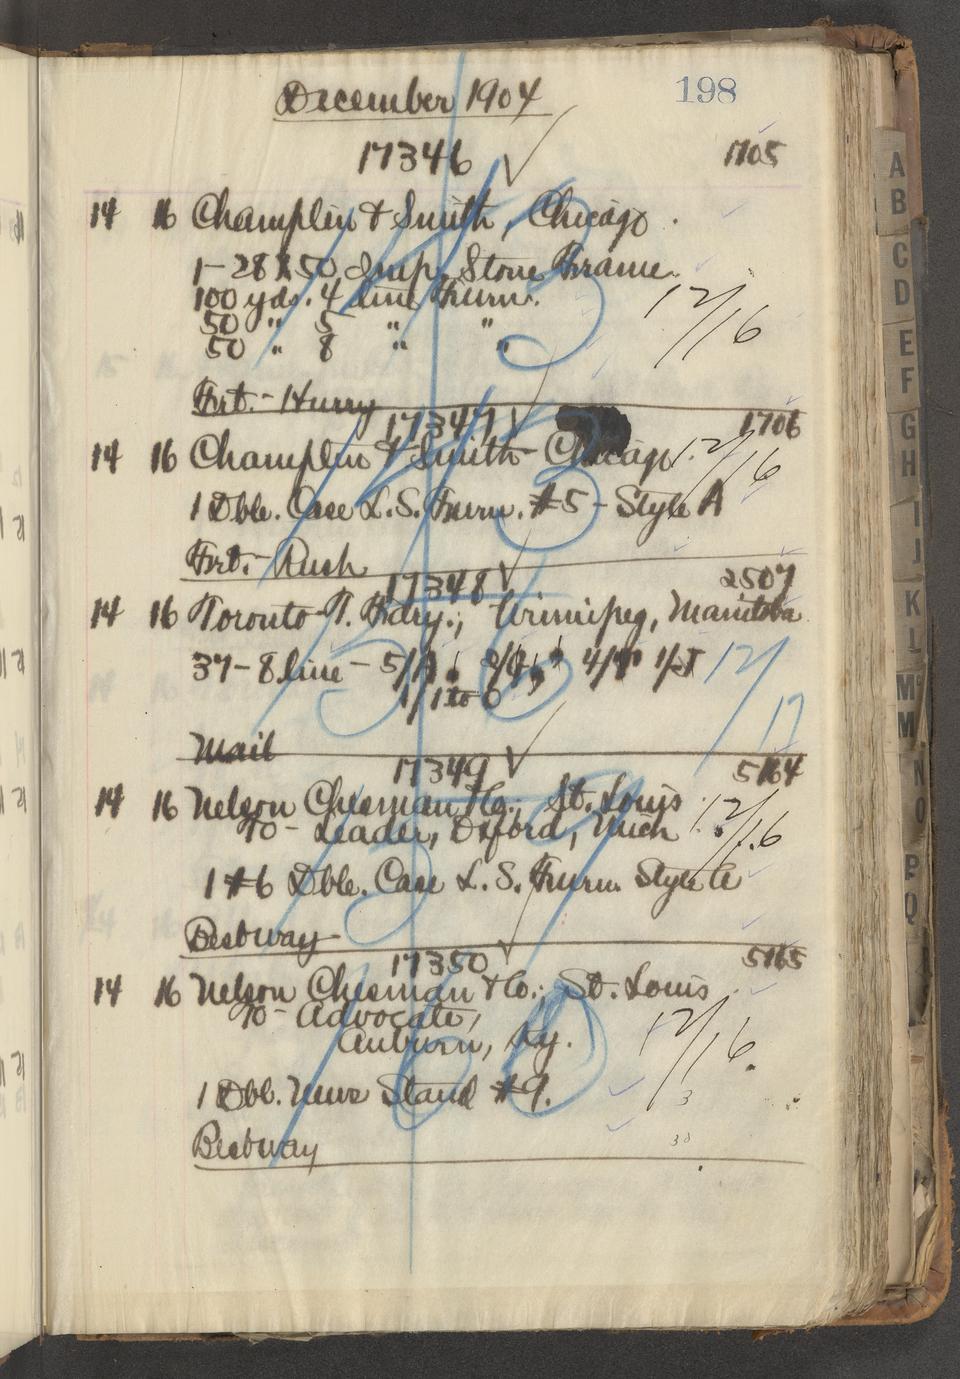 198
December 1904
17346 1705
14 16 Champlin & Smith, Chicago.
1-28X50 Imp. Stone Frame.
100 yds. 4 line Furn.
50 " 5 " "
50 " 8 " "
12/16
Frt.- Hurry
17347 1706
14 16 Champlin & Smith- Chicago. 12/16
1 Dble. Case L.S. Furn. #5 - Style A
Frt.- Rush
17348 2507
14 16 Toronto T. Fdry.; Winnipeg, Manitoba
37- 8 line - 5/A 1/J
1/1 to 0
12/17
Mail
17349 5164
14 16 Nelson Chesman & Co.; St. Louis.
To- Leader, Oxford, Mich.
12/16
1 #6 Dble. Case L.S. Furn. Style A
Bestway-
17350 5165
14 16 Nelson Chesman & Co.; St. Louis.
To- Advocate,
Auburn, Ky.
12/16
1 Dbl. News Stand #9.
Bestway
A
B
C
D
E
F
G
H
I
J
K
L
Mc
M
N
O
P
Q